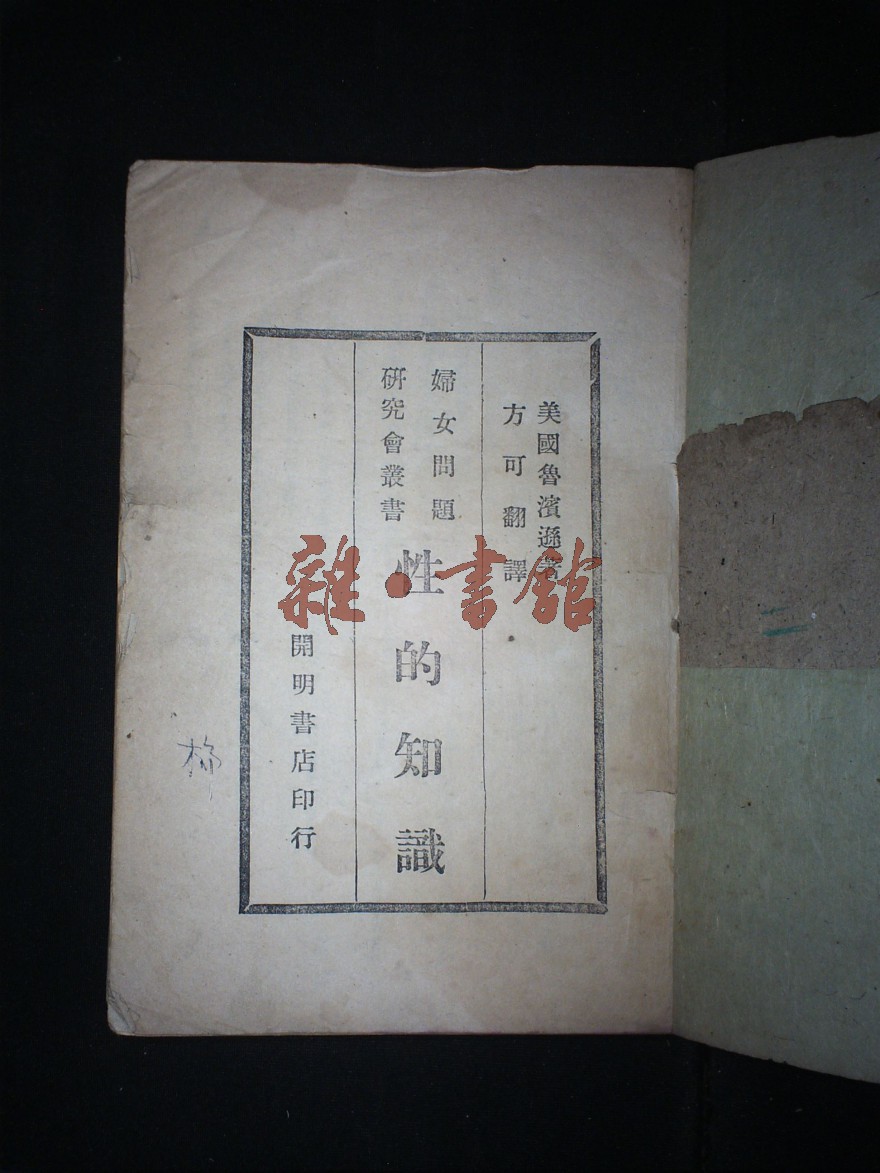 美國魯濱遜著
方可翻譯
婦女問題
研究會叢書
性的知識
開明書店印行
雜·書館